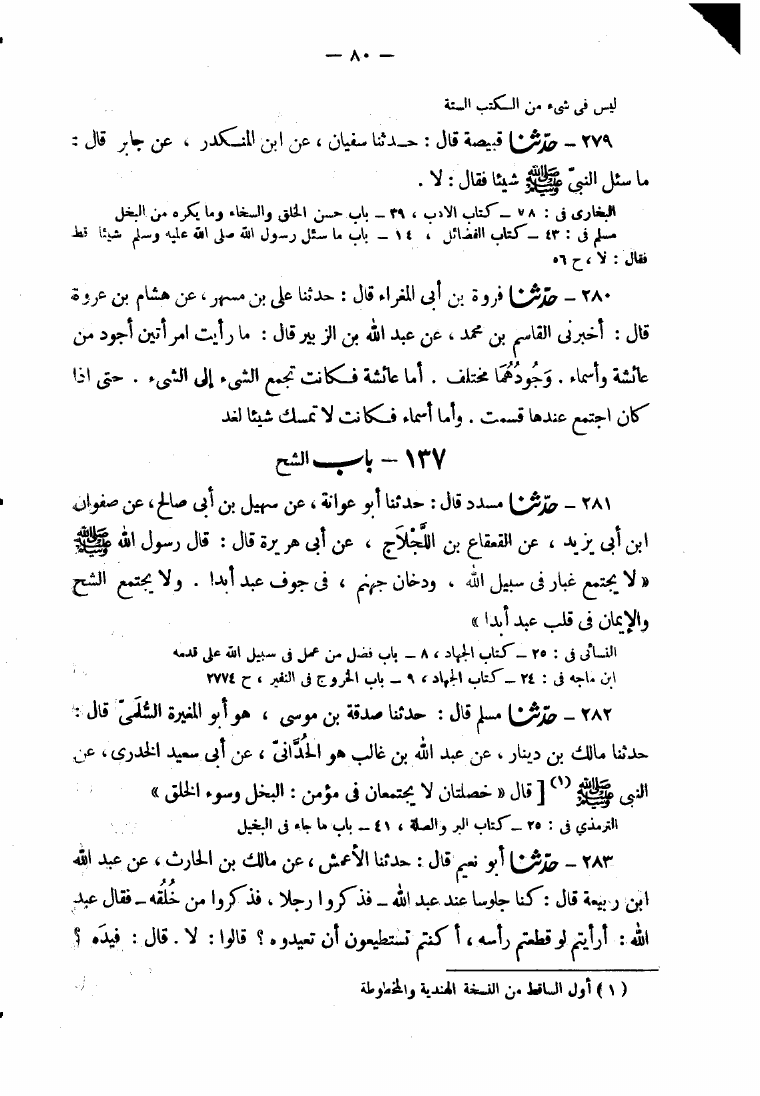 — ٨٠ —
ليس فى شىء من الكتب الستة
٢٧٩ — حدّثنا قبيصة قال : حدثنا سفيان ، عن ابن المنكدر ، عن جابر قال :
ما سئل النبىّ ﷺ شيئا فقال : لا .
البخارى فى : ٧٨ — كتاب الادب ، ٣٩ — باب حسن الخلق والسخاء وما يكره من البخل
مسلم فى : ٤٣ — كتاب الفضائل ، ١٤ — باب ما سئل رسول الله صلى الله عليه وسلم شيئا قط
فقال : لا ، ح ٥٦
٢٨٠ — حدّثنا فروة بن أبى المغراء قال : حدثنا على بن مسهر ، عن هشام بن عروة
قال : أخبرنى القاسم بن محمد ، عن عبد الله بن الزبير قال : ما رأيت امرأتين أجود من
عائشة وأسماء . وَجُودُهُمَا مختلف . أما عائشة فكانت تجمع الشىء إلى الشىء . حتى اذا
كان اجتمع عندها قسمت . وأما أسماء فكانت لا تمسك شيئا لغد
١٣٧ — باب الشح
٢٨١ — حدّثنا مسدد قال : حدثنا أبو عوانة ، عن سهيل بن أبى صالح ، عن صفوان
ابن أبى يزيد ، عن القعقاع بن اللَّجْلَاج ، عن أبى هريرة قال : قال رسول الله ﷺ
« لا يجتمع غبار فى سبيل الله ، ودخان جهنم ، فى جوف عبد أبدا . ولا يجتمع الشح
والإيمان فى قلب عبد أبدا »
النسائى فى : ٢٥ — كتاب الجهاد ، ٨ — باب فضل من عمل فى سبيل الله على قدمه
ابن ماجه فى : ٢٤ — كتاب الجهاد ، ٩ — باب الخروج فى النفير ، ح ٢٧٧٤
٢٨٢ — حدّثنا مسلم قال : حدثنا صدقة بن موسى ، هو أبو المغيرة السُّلَمىّ قال :
حدثنا مالك بن دينار ، عن عبد الله بن غالب هو الحُدَّانىّ ، عن أبى سعيد الخدرى ، عن
النبى ﷺ (١) [ قال « خصلتان لا يجتمعان فى مؤمن : البخل وسوء الخلق »
الترمذي فى : ٢٥ — كتاب البر والصلة ، ٤١ — باب ما جاء فى البخيل
٢٨٣ — حدّثنا أبو نعيم قال : حدثنا الأعمش ، عن مالك بن الحارث ، عن عبد الله
ابن ربيعة قال : كنا جلوسا عند عبد الله — فذكروا رجلا ، فذكروا من خُلُقه — فقال عبد
الله : أرأيتم لو قطعتم رأسه ، أكنتم تستطيعون أن تعيدوه ؟ قالوا : لا . قال : فيدَه ؟
( ١ ) أول الساقط من النسخة الهندية والمخطوطة